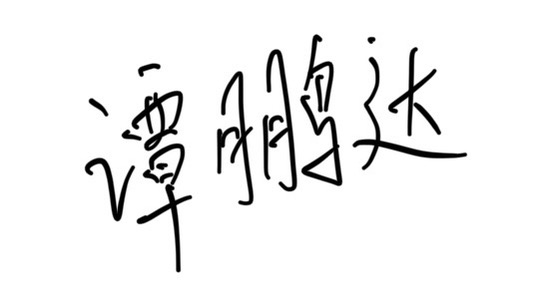 谭鹏达